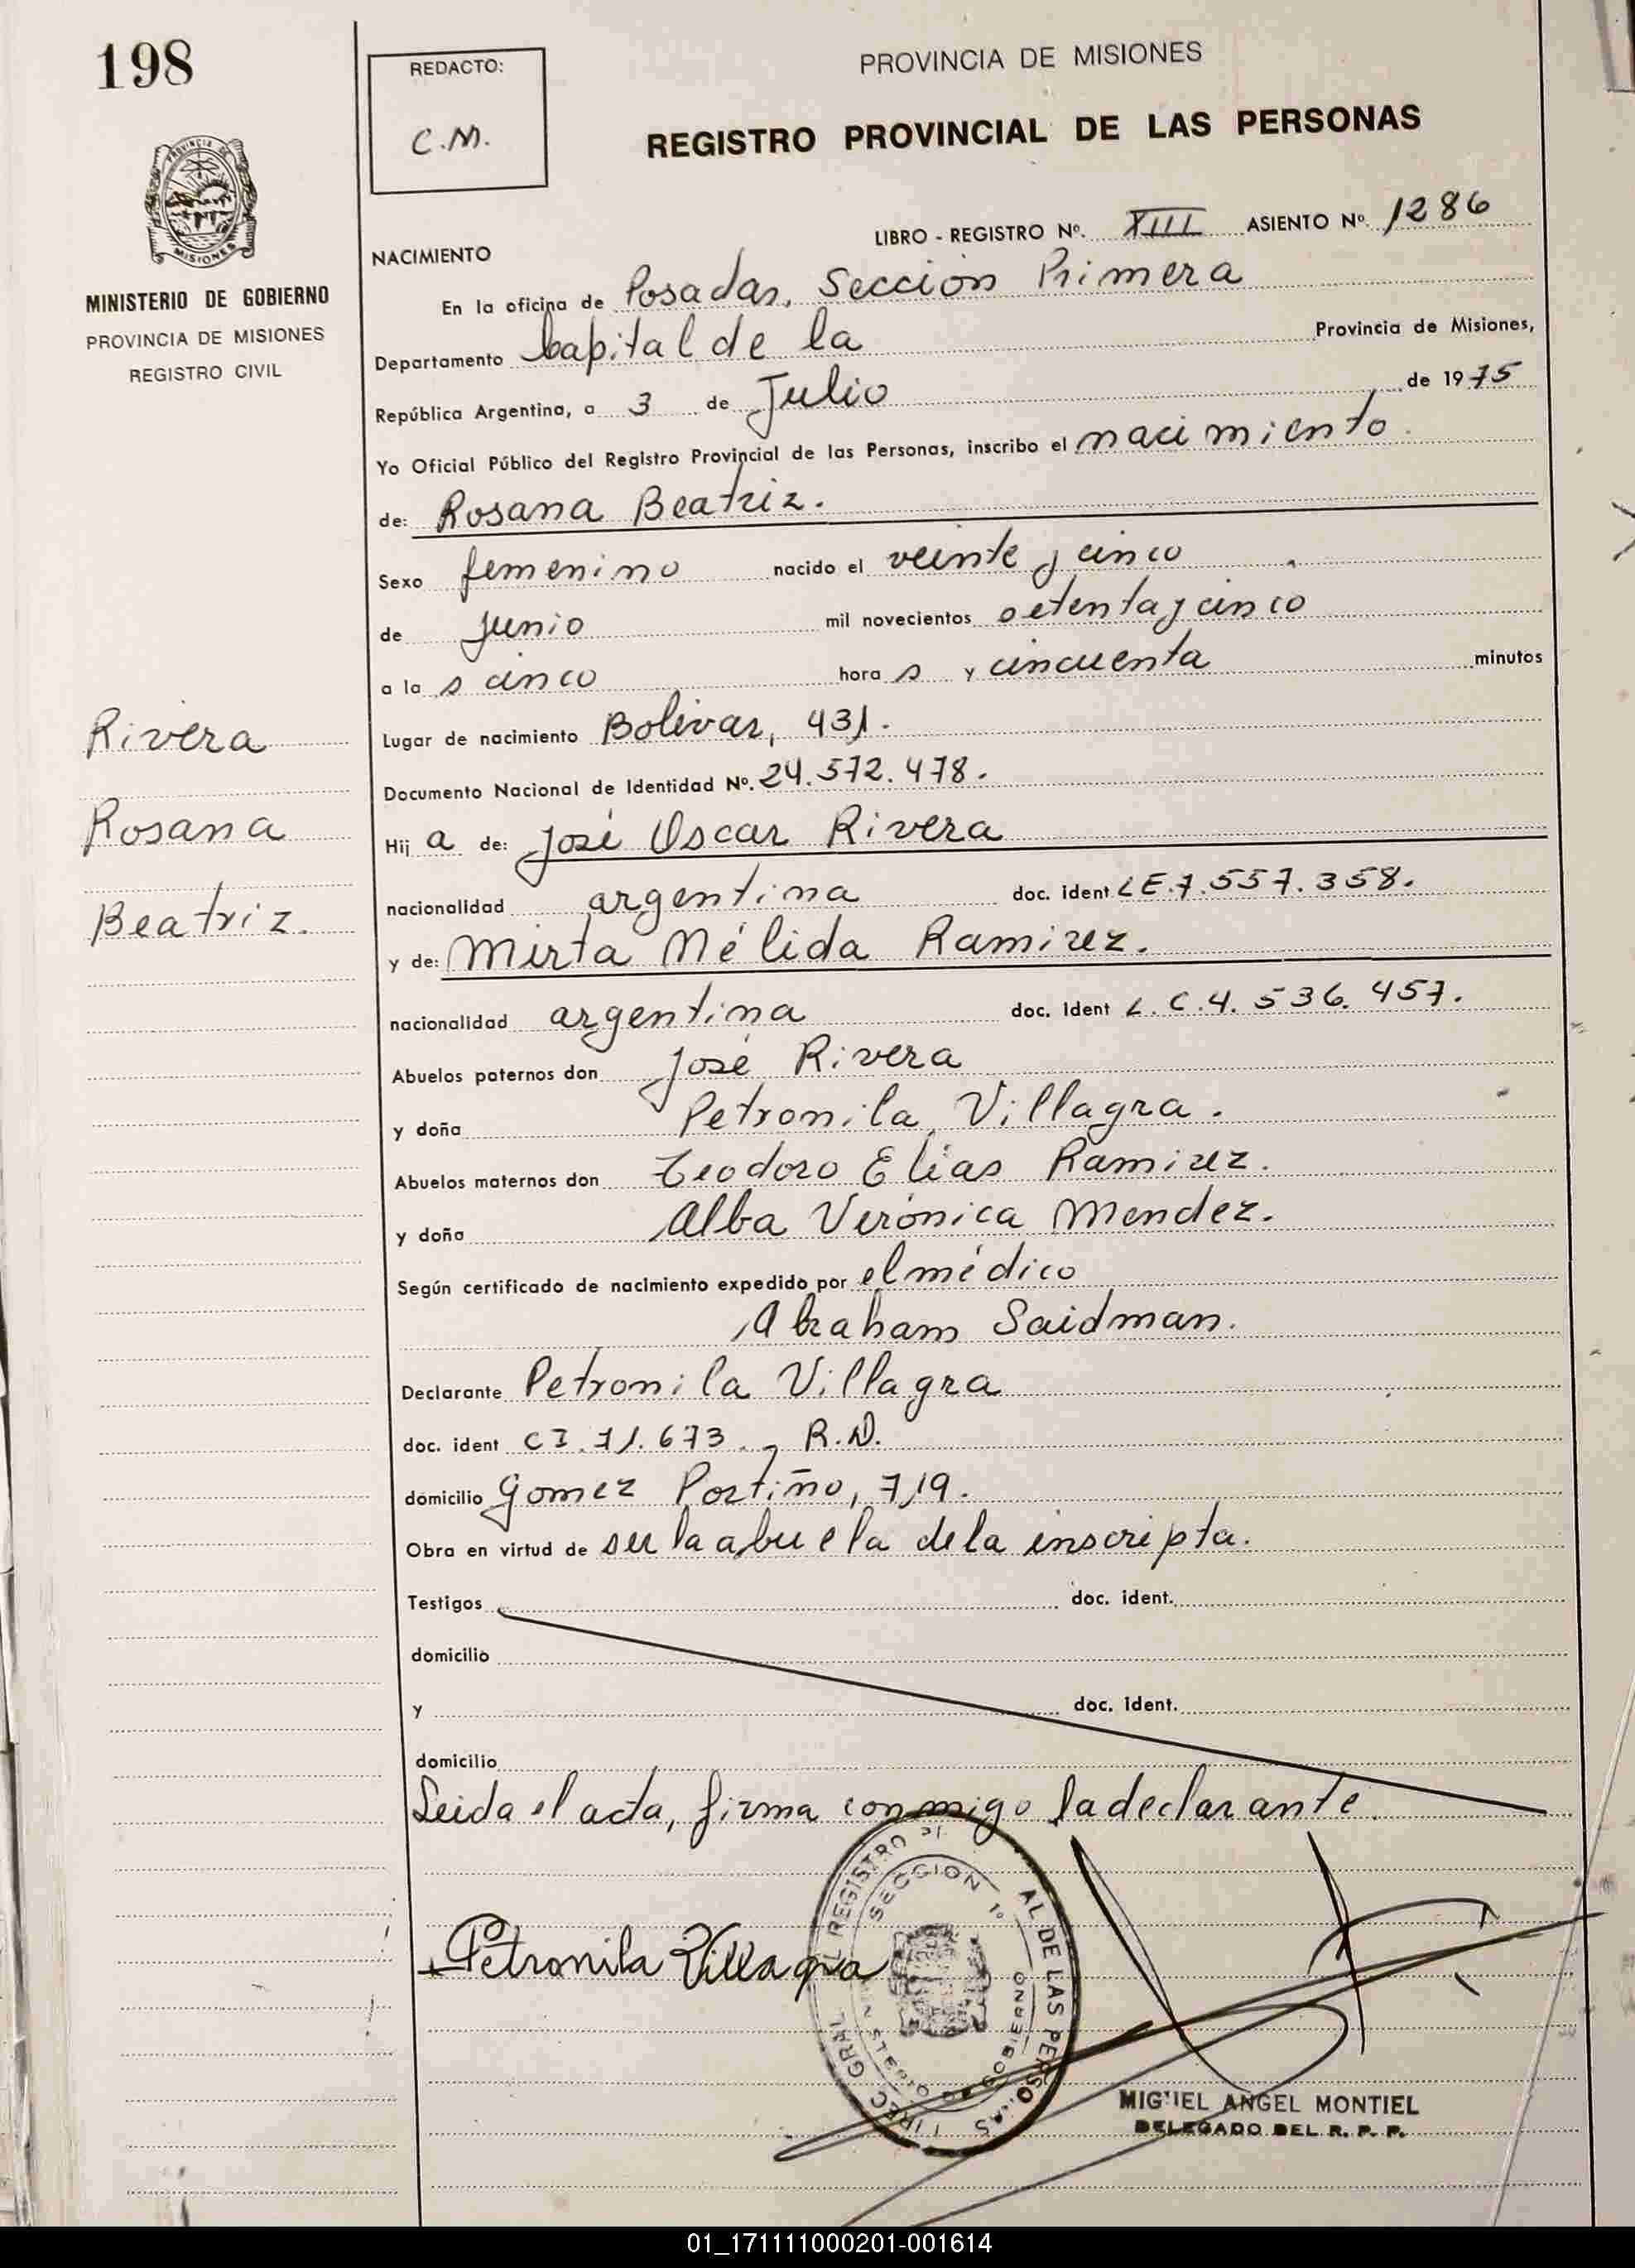 198
REDACTO:
C.M.
PROVINCIA DE MISIONES
REGISTRO PROVINCIAL DE LAS PERSONAS
PROVINCIA DE
MISIONES
MINISTERIO DE GOBIERNO
PROVINCIA DE MISIONES
REGISTRO CIVIL
LIBRO - REGISTRO Nº. XIII ASIENTO Nº. 1286
NACIMIENTO
En la oficina de Posadas, Sección Primera
Departamento Capital de la Provincia de Misiones,
República Argentina, a 3 de Julio de 1975
Yo Oficial Público del Registro Provincial de las Personas, inscribo el nacimiento
de: Rosana Beatriz.
Sexo femenino nacido el veinte y cinco
de junio mil novecientos setenta y cinco
a la s cinco hora s y cincuenta minutos
Lugar de nacimiento Bolívar, 431.
Documento Nacional de Identidad Nº. 24.572.478.
Hij a de: José Oscar Rivera
nacionalidad argentina doc. ident LE.7.557.358.
y de: Mirta Nélida Ramirez.
nacionalidad argentina doc. ident L.C.4.536.457.
Abuelos paternos don José Rivera
y doña Petronila Villagra.
Abuelos maternos don Teodoro Elías Ramirez.
y doña Alba Verónica Mendez.
Según certificado de nacimiento expedido por el médico
Abraham Saidman.
Declarante Petronila Villagra
doc. ident CI.71.673., R.N.
domicilio Gomez Portiño, 719.
Obra en virtud de ser la abuela de la inscripta.
Testigos doc. ident.
domicilio
y doc. ident.
domicilio
Leida el acta, firma conmigo la declarante.
Rivera
Rosana
Beatriz.
Petronila Villagra
SECCION 1º
MIGUEL ANGEL MONTIEL
DELEGADO DEL R. P. P.
01_171111000201-001614